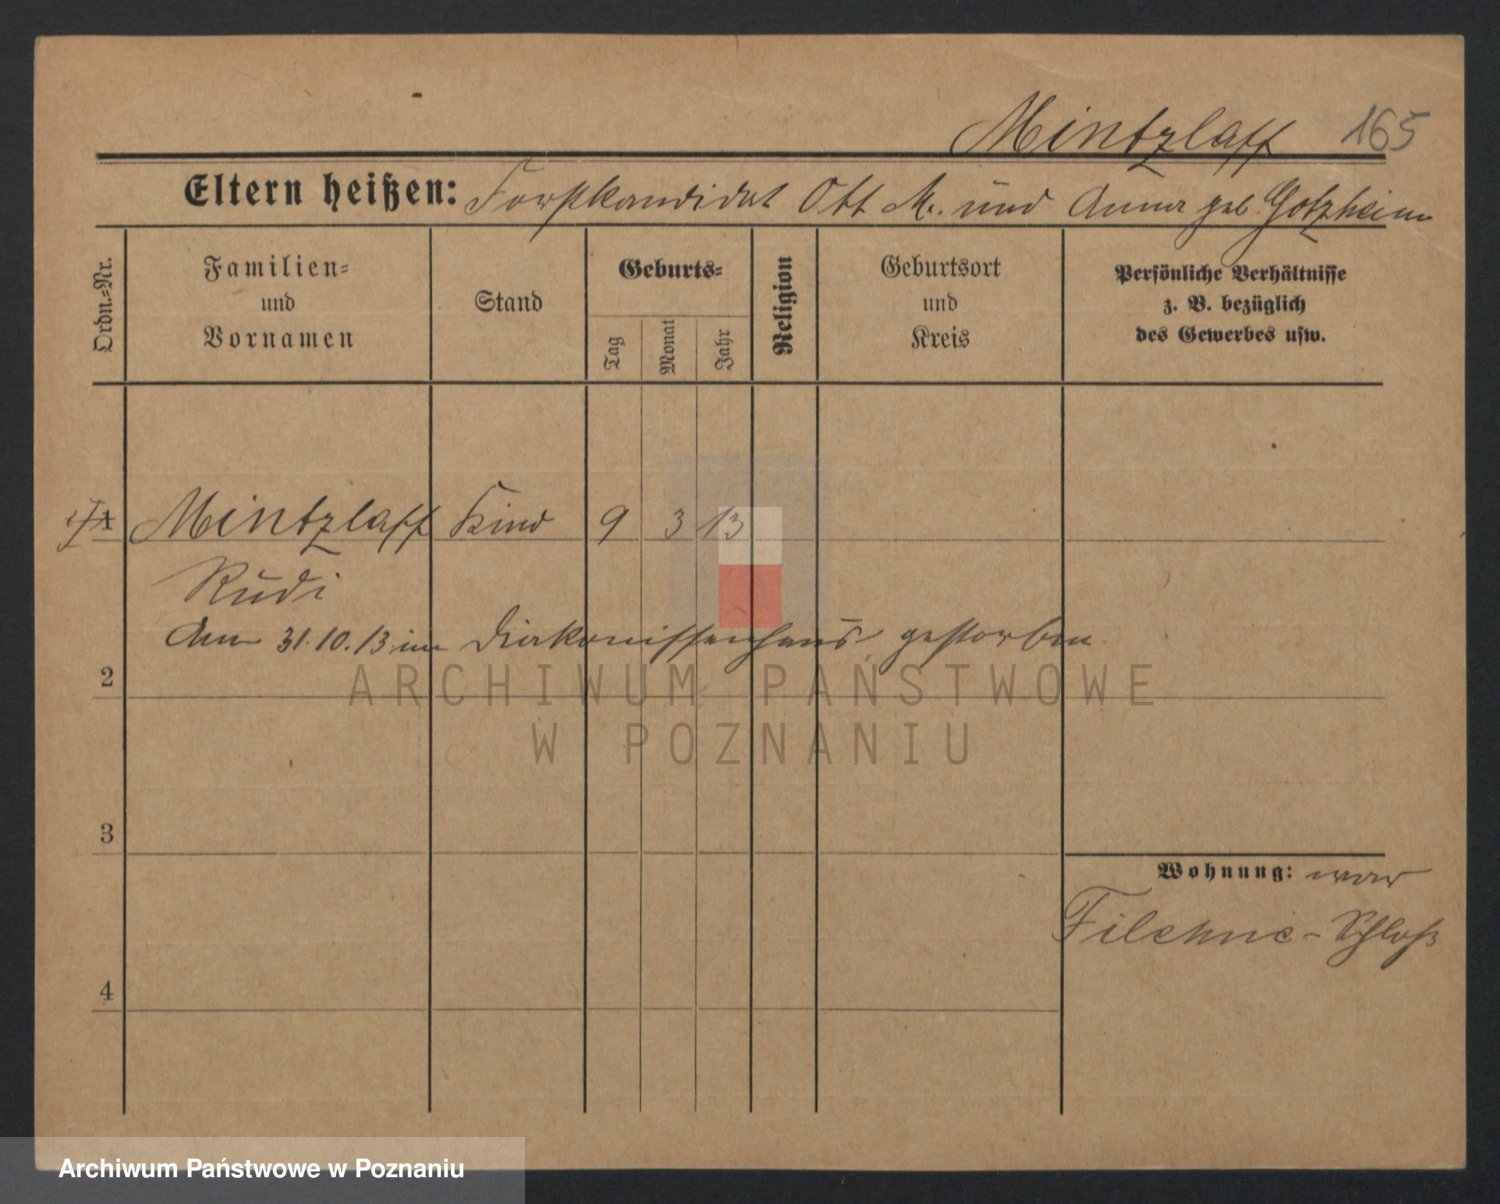 Mintzlaff 165
Eltern heißen: Forstkandidat Ott M. und Anna geb. Gotzheim
Ordn.=Nr.
Familien=
und
Vornamen
Stand
Geburts=
Tag
Monat
Jahr
Religion
Geburtsort
und
Kreis
Persönliche Verhältnisse
z. B. bezüglich
des Gewerbes usw.
1 Mintzlaff Kind 9 3 13
Rudi
Am 31.10.13 im Diakonissenhaus gestorben
2
ARCHIWUM PAŃSTWOWE
W POZNANIU
3
Wohnung: war
Filehne-Schloß
4
Archiwum Państwowe w Poznaniu